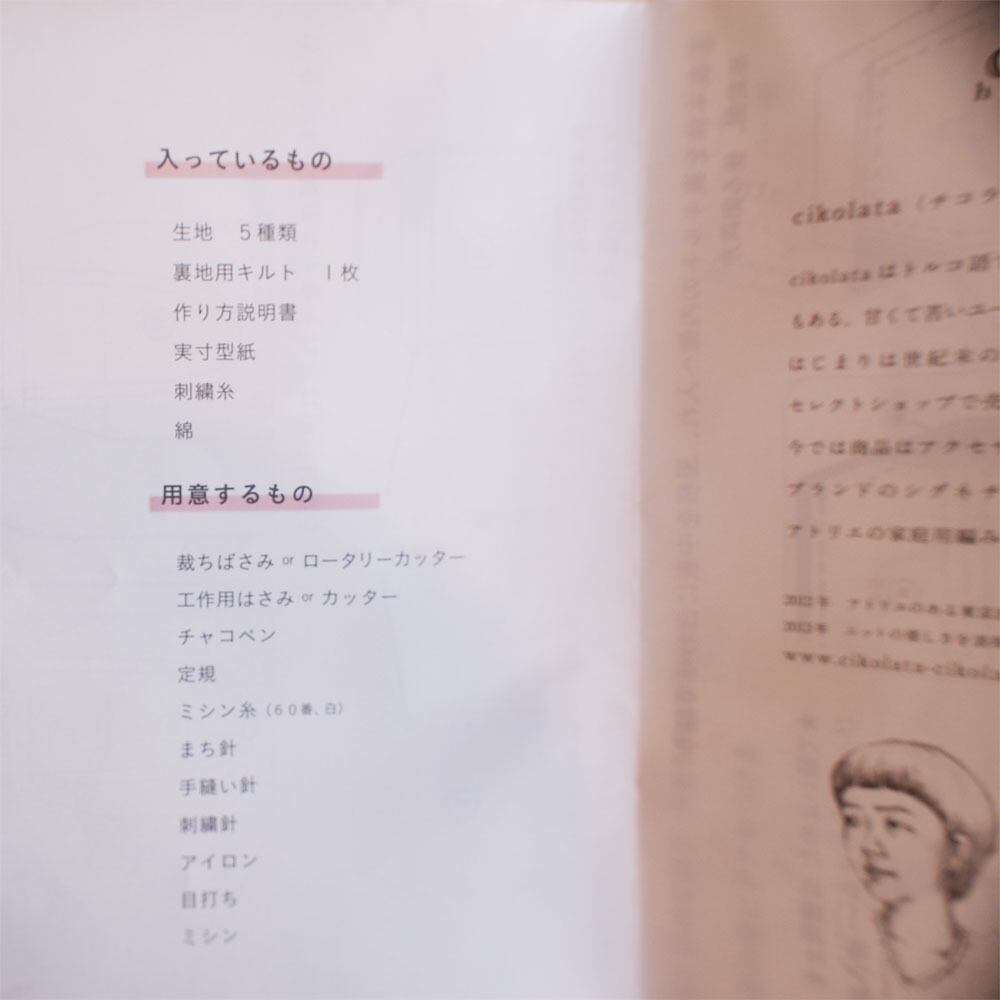 入っているもの
生地　５種類
裏地用キルト　１枚
作り方説明書
実寸型紙
刺繍糸
綿
用意するもの
裁ちばさみ or ロータリーカッター
工作用はさみ or カッター
チャコペン
定規
ミシン糸（６０番、白）
まち針
手縫い針
刺繍針
アイロン
目打ち
ミシン
h
cikolata（チコラ
cikolataはトルコ語
もある。甘くて苦いユー
はじまりは世紀末の
セレクトショップで売
今では商品はアクセ
ブランドのシグネチ
アトリエの家庭用編み
2012年　アトリエのある東
2013年　ニットの楽しさを
www.cikolata-cikola